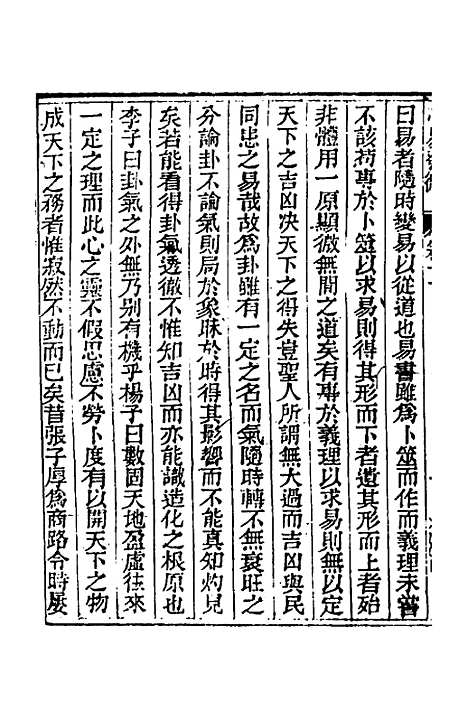 曰易者隨時變易以從道也易書雖爲卜筮而作而義理未嘗
不該苟專於卜筮以求易則得其形而下者遺其形而上者殆
非體用一原顯微無間之道矣有專於義理以求易則無以定
天下之吉凶决天下之得失豈聖人所謂無大過而吉凶與民
同患之易哉故爲卦雖有一定之名而氣隨時轉不無衰旺之
分論卦不論氣則局於象昧於時得其影響而不能真知灼見
矣若能看得卦氣透徹不惟知吉凶而亦能識造化之根原也
李子曰卦氣之外無乃别有機乎楊子曰數固天地盈虛往來
一定之理而此心之靈不假思慮不勞卜度有以開天下之物
成天下之務者惟寂然不動而已矣昔張子厚爲商路令時屡